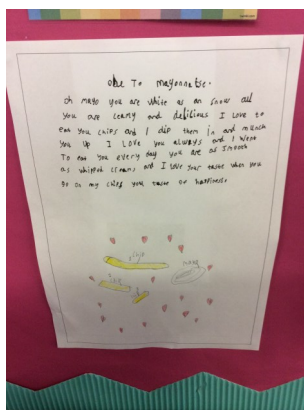 ode To mayonnaise.
oh mayo you are white as an snow all
you are learly and delicious I love to
eat you chips and I dip them in and munch
you up I love you always and I want
To eat you every day you are as smooth
as whipped cream and I love your taste when you
go on my chips you taste of happiness.
chip
mayo
chip